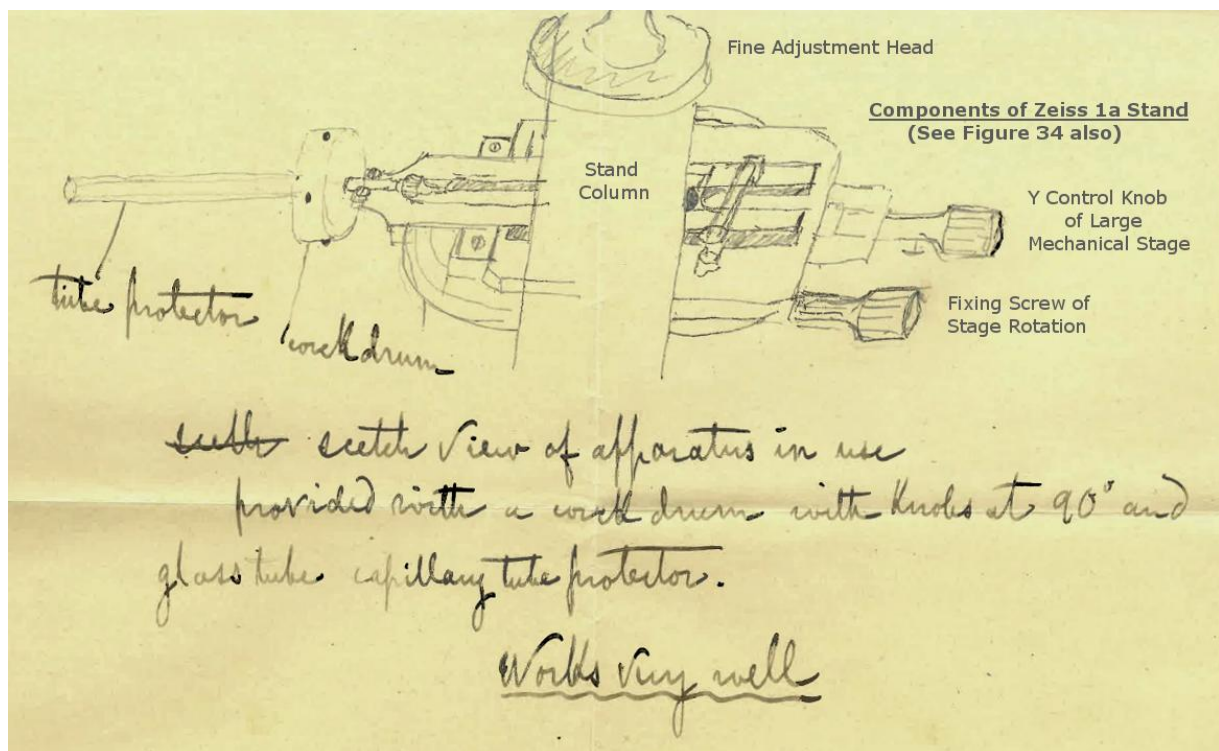 Fine Adjustment Head
Components of Zeiss 1a Stand
(See Figure 34 also)
Stand
Column
Y Control Knob
of Large
Mechanical Stage
Fixing Screw of
Stage Rotation
tube protector
cork drum
scetch view of apparatus in use
provided with a cork drum with Knobs at 90° and
glass tube capillary tube protector.
Works very well